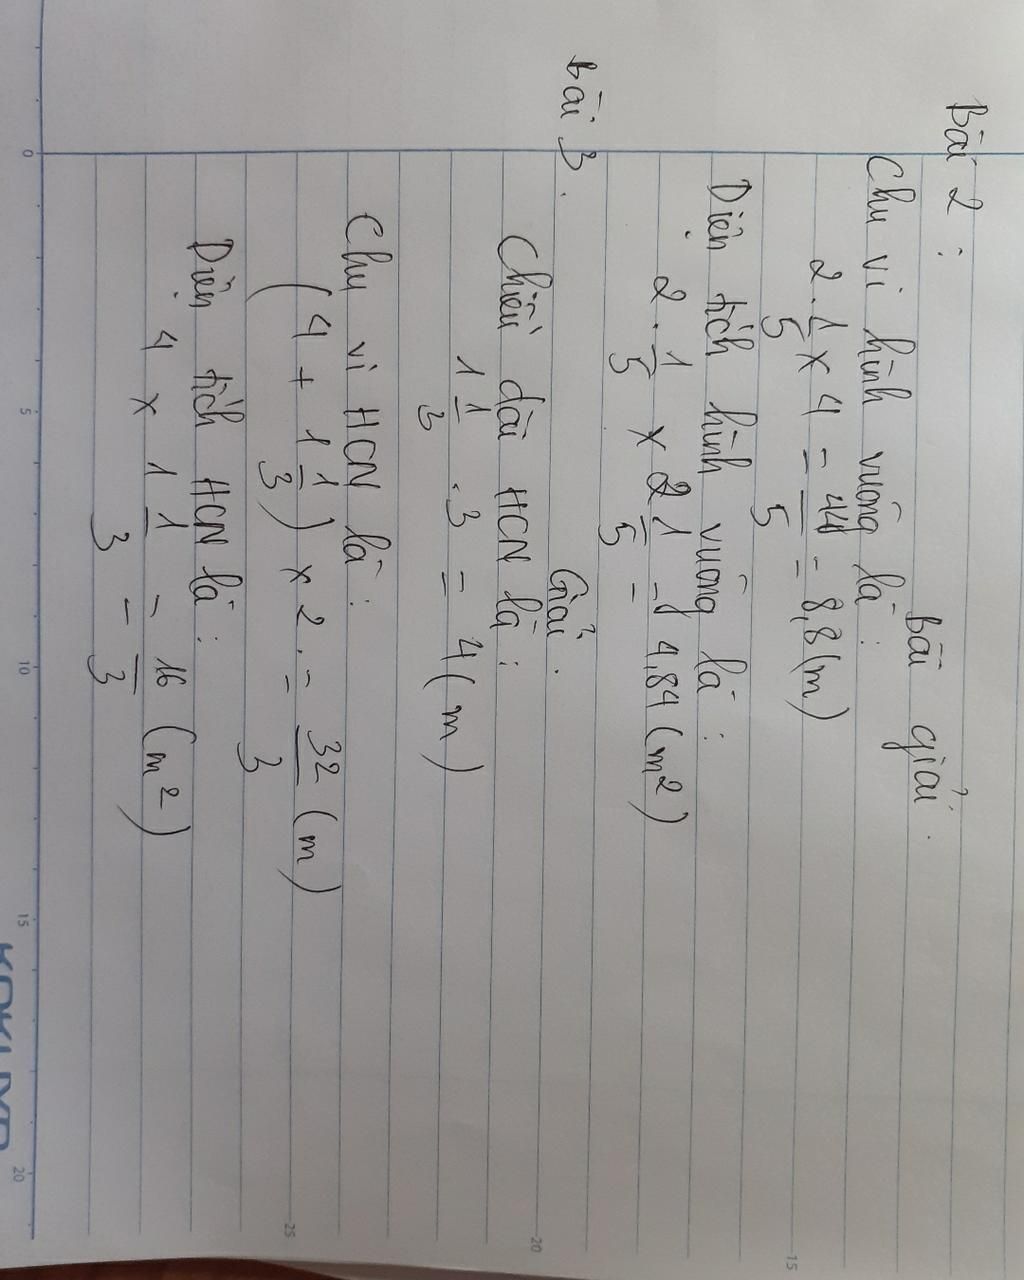 Bài 2 :
bài giải.
Chu vi hình vuông là :
2.1/5 x 4 = 44/5 = 8,8 (m)
Diện tích hình vuông là :
2.1/5 x 2 1/5 = 4,84 (m2)
bài 3.
Giải.
Chiều dài HCN là :
1 1/3 . 3 = 4 (m)
Chu vi HCN là :
(4 + 1 1/3) x 2 . = 32/3 (m)
Diện tích HCN là :
4 x 1 1/3 = 16/3 (m2)
0
5
10
15
20
15
20
25